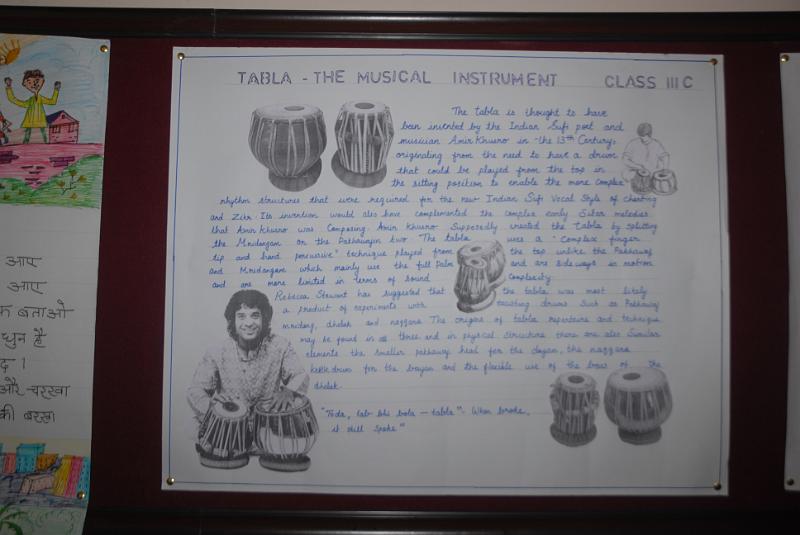 आए
आए
क बताओ
धुन है
द ।
और चरखा
की बरखा
TABLA - THE MUSICAL INSTRUMENT CLASS III C
The tabla is thought to have
been invented by the Indian Sufi poet and
musician Amir Khusro in the 13th Century,
originating from the need to have a drum
that could be played from the top in
the sitting position to enable the more complex
rhythm structures that were required for the new Indian Sufi Vocal Style of chanting
and Zikr. Its invention would also have complemented the complex early Sitar melodies
that Amir Khusro was Composing. Amir Khusro Supposedly invented the tabla by splitting
the Mridangam or the Pakhawaj in two "The tabla uses a "Complex finger
tip and hand percussive" technique played from the top unlike the Pakhawaj
and Mridangam which mainly use the full Palm and are sideways in motion
and are more limited in terms of sound Complexity.
Rebecca Stewart has suggested that the tabla was most likely
a product of experiments with existing drums Such as Pakhawaj
mridang, dholak and naggara The origins of tabla repertoire and technique
may be found in all three and in physical Structure there are also Similar
elements the smaller pakhawaj head for the dayan, the naggara
kettle drum for the bayan and the flexible use of the bass of the
dholak.
"Toda, tab bhi bola — tabla" - When broke,
it still Spoke"